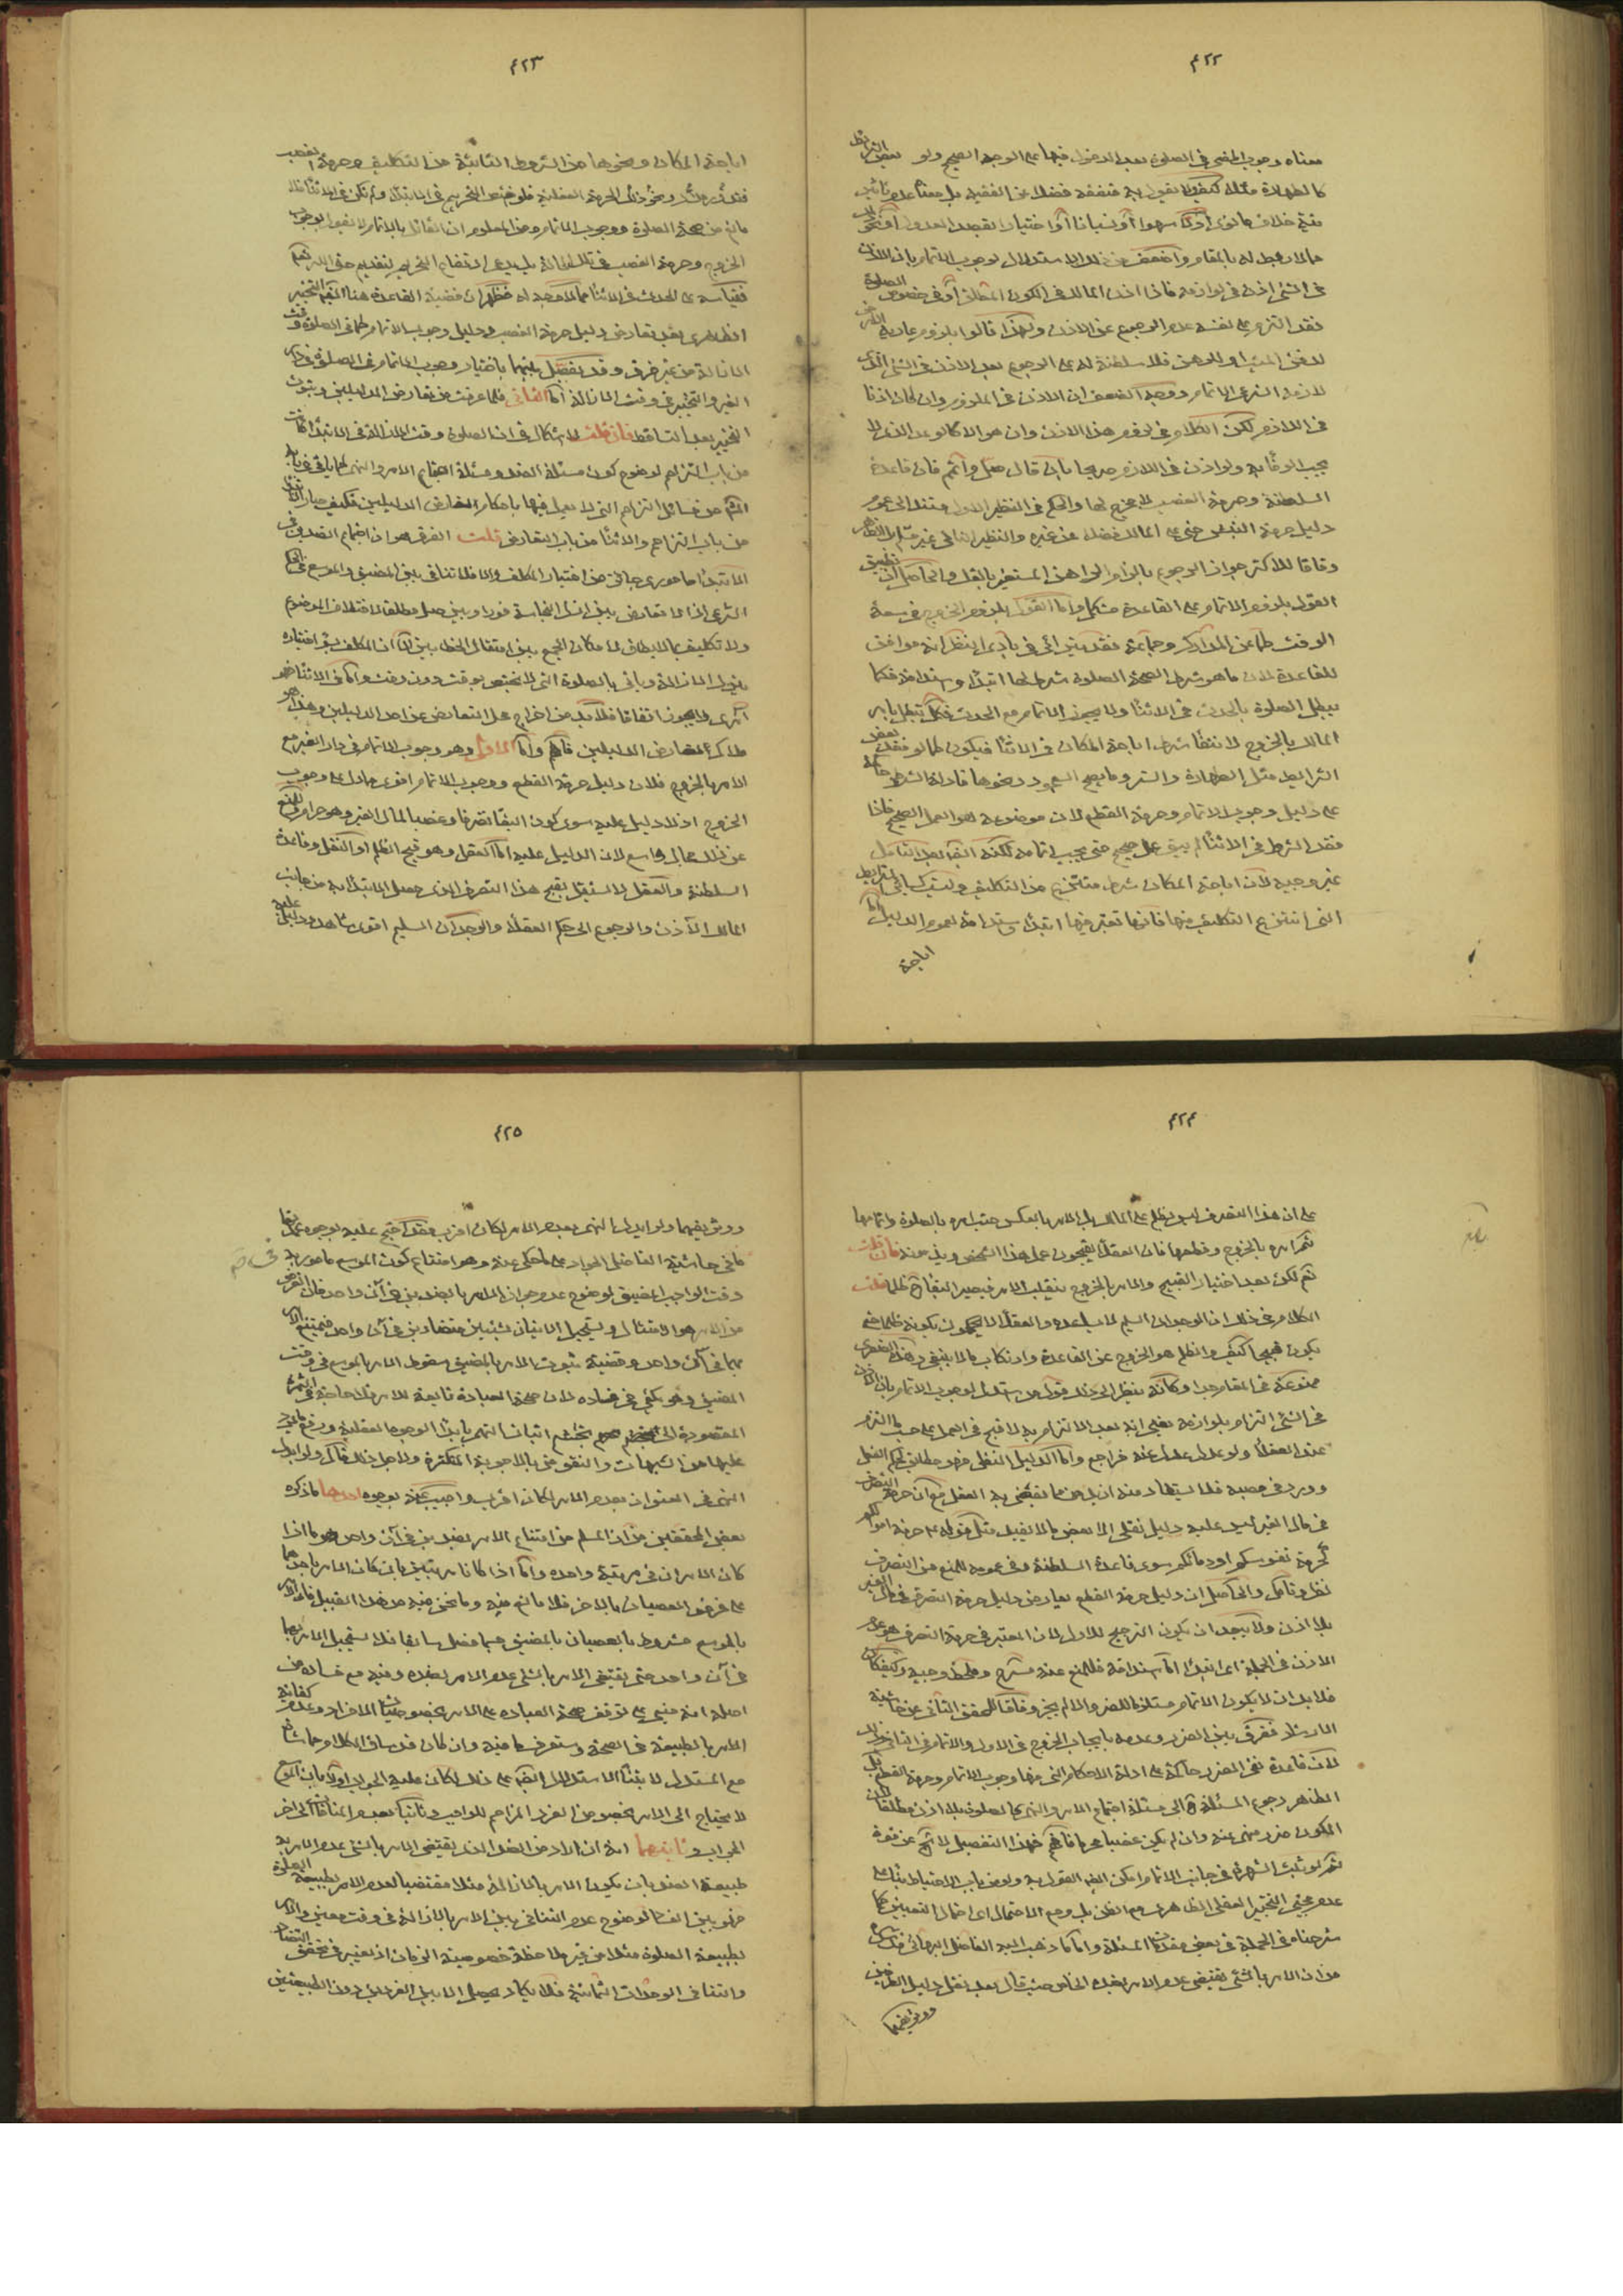 ٤٢٢
معناه وجوب المضي في الصلوة بعد الدخول فيها على الوجه الصحيح ولو بعض الشرائط
كالطهارة مثلا كيف لا يقول به متفقه فضلا عن الفقيه بل معناه عدم تأثير
نية خلاف ما نوى أولا سهوا أو نسيانا أو اختيارا بقصد العدول أو نحو ذلك
مما لا ربط له بالمقام وأضعف من ذلك الاستدلال لوجوب الاتمام بان الاذن
في الشئ اذن في لوازمه فاذا اذن المالك في الكون المطلق أو في خصوص الصلوة
فقد التزم على نفسه عدم الرجوع عن الاذن ولهذا قالوا بلزوم عارية الارض
لدفن الميت والرهن فلا سلطنة له على الرجوع بعد الاذن في الشئ الذي
لازمه الشرعي الاتمام ووجه الضعف ان الاذن في الملزوم وان كان اذنا
في اللازم لكن الكلام في لزوم هذا الاذن وان هو الا كالوعد الذي لا
يجب الوفاء به ولو اذن في اللازم صريحا بان قال صل وأتم فان قاعدة
السلطنة وحرمة الغصب لا مخرج لها والحكم في النظير الاول مستند الى عموم
دليل حرمة النبش حتى على المالك فضلا عن غيره والنظير الثاني غير مسلم بل الظاهر
وفاقا للاكثر جواز الرجوع بالزام الراهن المستعير بالفك والحاصل ان تطبيق
القول بلزوم الاتمام على القاعدة مشكل وأما القول بلزوم الخروج في سعة
الوقت كما عن المدارك وجماعة فقد يترائى في بادي النظر انه موافق
للقاعدة لان ما هو شرط لصحة الصلوة شرط لها ابتداء واستدامة فكما
يبطل الصلوة بالحدث في الاثناء ولا يجوز الاتمام مع الحدث فكذا تبطل بامر
المالك بالخروج لانتفاء شرط اباحة المكان في الاثناء فيكون كما لو فقد بعض
الشرائط مثل الطهارة والستر وما يصح السجود ونحوها فادلة الشرط حاكمة
على دليل وجوب الاتمام وحرمة القطع لان موضوعه هو العمل الصحيح فاذا
فقد الشرط في الاثناء لم يبق عمل صحيح حتى يجب اتمامه لكنه ايضا بعد التأمل
غير وجيه لان اباحة المكان شرط منتزع من التكليف وليست كسائر الشرائط
التي انتزع التكليف منها فانها تعتبر فيها ابتداء واستدامة لعموم الدليل وأما
اباحة
٤٢٣
اباحة المكان ونحوها من الشروط الثابتة من التكليف وحرمة الغصب
مانع من صحة الصلوة ووجوب الاتمام ومن المعلوم ان القائل بالاتمام لا يقول بوجوب
الخروج وحرمة الغصب في تلك الحالة بل يدعى انتفاء التحريم لتقديم حق الله نعم
فقياسه على الحدث في الاثناء مما لا وجه له فظهر ان قضية القاعدة هنا ايضا التخيير
الظاهري بعد تعارض دليل حرمة الغصب ودليل وجوب الاتمام كما في الصلوة وقت
الازالة من غير فرق وقد يفصل بينهما باختيار وجوب الاتمام في الصلوة في دار
الغير والتخيير في وقت الازالة أما الثاني فلما عرفت من تعارض الدليلين وثبوت
التخيير بعد التساقط فان قلت لا اشكال في ان الصلوة وقت الازالة في الابتداء كانت
من باب التزاحم لوضوح كون مسئلة الضد ومسئلة اجتماع الامر والنهي كما يأتي في بابه
من باب التزاحم والاثناء من باب التعارض قلت الفرق هو ان اجتماع الضدين في
الابتداء مأموري جائي من اختيار المكلف والا فلا تنافي بين المضيق والموسع في الحكم
الشرعي اذ لا تعارض بين ازل النجاسة فورا وبين صل مطلقا لاختلاف الموضوع
ولا تكليف بما لا يطاق لامكان الجمع بين امتثال الخطابين الا ان المكلف بسوء اختياره
يترك الازالة ويأتي بالصلوة التي لا تختص بوقت دون وقت وأما في الاثناء فهو
آمري لا يجوز اتفاقا فلا بد من اخراج محل التعارض عن احد الدليلين وهذا هو
ملاك تعارض الدليلين فافهم وأما الاول وهو وجوب الاتمام في دار الغير مع
الامر بالخروج فلان دليل حرمة القطع ووجوب الاتمام اقوى مما دل على وجوب
الخروج اذ لا دليل عليه سوى كون البقاء تصرفا وغصبا لمال الغير وهو حرام وللمنع
عن ذلك مجال واسع لان الدليل عليه اما العقل وهو قبح الظلم او النقل وقاعدة
السلطنة والعقل لا يستقل بقبح هذا التصرف الذي حصل الابتداء به من جانب
المالك الآذن والرجوع الى حكم العقلاء والوجدان السليم اقوى شاهد ودليل عليه
٤٢٤
على ان هذا التصرف ليس بظلم على المالك بل الامر بالعكس حيث امره بالصلوة واتمامها
ثم امره بالخروج وقطعها فان العقلاء يقبحون عمل هذا الشخص ويذمونه فان قلت
نعم لكن بعد اختيار القبيح والامر بالخروج ينقلب الامر فيصير البقاء ظلما قلت
الكلام في ذلك اذ الوجدان السليم لا يساعده والعقلاء لا يحكمون بكونه ظلما حتى
يكون قبيحا كيف والظلم هو الخروج عن القاعدة وارتكاب ما لا ينبغي وهذه الصغرى
ممنوعة في المقام جدا وكانه ينظر الى ذلك قول من استدل لوجوب الاتمام بان الاذن
في الشئ التزام بلوازمه يعني انه بعد الالتزام به لا قبح في العمل على حسب ما التزم
عند العقلاء ولو عدل عدل عنه فراجع وأما الدليل النقلي فهو مطابق لحكم العقل
وورد في مصبه فلا يستفاد منه ازيد مما يقضى به العقل مع ان حرمة التصرف
في مال الغير ليس عليه دليل نقلي الا بعض ما لا يفيد مثل قوله ص حرمة اموالكم
كحرمة نفوسكم او دمائكم سوى قاعدة السلطنة وفي عمومه للمنع من التصرف
نظر وتأمل والحاصل ان دليل حرمة القطع يعارض دليل حرمة التصرف في مال الغير
بلا اذن ولا يبعد ان يكون الترجيح للاول لان المعتبر في حرمة التصرف هو عدم
الاذن في الجملة اي ابتداء اما استدامة فللمنع عنه مسرح وملحظ وجيه وكيف كان
فلا بد ان لا يكون الاتمام مستلزما للضرر والا لم يجز وفاقا للمحقق الثاني في حاشية
الارشاد ففرق بين الضرر وعدمه بايجاب الخروج في الاول والاتمام في الثاني وذلك
لان قاعدة نفي الضرر حاكمة على ادلة الاحكام التي منها وجوب الاتمام وحرمة القطع بل
الظاهر رجوع المسئلة ح الى مسئلة اجتماع الامر والنهي كالصلوة بلا اذن مطلقا لان
الكون ضرر منهى عنه وان لم يكن غصبا محرما فافهم فهذا التفصيل لا يخ عن قوة
ثم لو ثبت الشهرة في جانب الاتمام امكن ايضا القول به ولو من باب الاحتياط بناء على
عدم مجئ التخيير العقلي الظاهري مع الظن بل ومع الاحتمال اي احتمال التعيين كما
شرحناه في الجملة في بعض مقدمات المسئلة وأما ما ذهب اليه الفاضل البهائي قدس سره
من ان الامر بالشئ يقتضى عدم الامر بضده الخاص حيث قال بعد نقل دليل الطرفين
ووثر يفهما
٤٢٥
ووثر يفهما ولو ابدل النهي بعدم الامر لكان اقرب فقد احتج عليه بوجوه منها
ما في حاشية الفاضل الجواد على ما حكى عنه وهو امتناع كون الموسع مامورا به في
وقت الواجب المضيق لوضوح عدم جواز الامر بالضدين في آن واحد فان الغرض
من الامر هو الامتثال ويستحيل الاتيان بشيئين متضادين في آن واحد فيمتنع الامر
بهما في آن واحد وقضية ثبوت الامر بالمضيق سقوط الامر بالموسع في وقت
المضيق وهو يكفي في فساده لان صحة العبادة تابعة للامر فلا حاجة في الثمرة
المقصودة الى تجشم اثبات النهي بابداء الوجوه العقلية ودفع ما يورد
عليها من الشبهات والنقوض بالاجوبة المتكثرة ولاجل ذلك قال ولو ابدل
النهي في العنوان بعدم الامر لكان اقرب واجيب عنه بوجوه احدها ما ذكره
بعض المحققين من ان المسلم من امتناع الامر بضدين في آن واحد هو ما اذا
كان الامران في مرتبة واحدة وأما اذا كانا مرتبين بان كان الامر باحدهما
على فرض العصيان بالاخر فلا مانع منه وما نحن فيه من هذا القبيل فان الامر
بالموسع مشروط بالعصيان بالمضيق كما فصل سابقا فلا يستحيل الامر بهما
في آن واحد حتى يقتضى الامر بالشئ عدم الامر بضده وفيه مع فساد من
اصله انه مبنى على توقف صحة العبادة على الامر بخصوصيات الافراد وعدم كفاية
الامر بالطبيعة في الصحة وستعرف ما فيه وان كان قد ساق الكلام مماشاة
مع المستدل لابتناء الاستدلال ايضا على ذلك لكان عليه الجواب اولا بان الموسع
لا يحتاج الى الامر بخصوص الفرد المزاحم للواجب وثانيا بعدم المنافاة الى اخر
الجواب وثانيهما انه ان اراد من الضد الذي يقتضى الامر بالشئ عدم الامر به
طبيعة الضد بان يكون الامر بالازالة مثلا مقتضيا لعدم الامر بطبيعة الصلوة
فهو بين الفساد لوضوح عدم التنافي بين الامر بالازالة في وقت معين والامر
بطبيعة الصلوة مثلا من غير ملاحظة خصوصية الزمان اذ يعتبر في تحقق التضاد
والتنافي الوحدات الثمانية فلا يكاد يحصل الا بين الفردين دون الطبيعتين